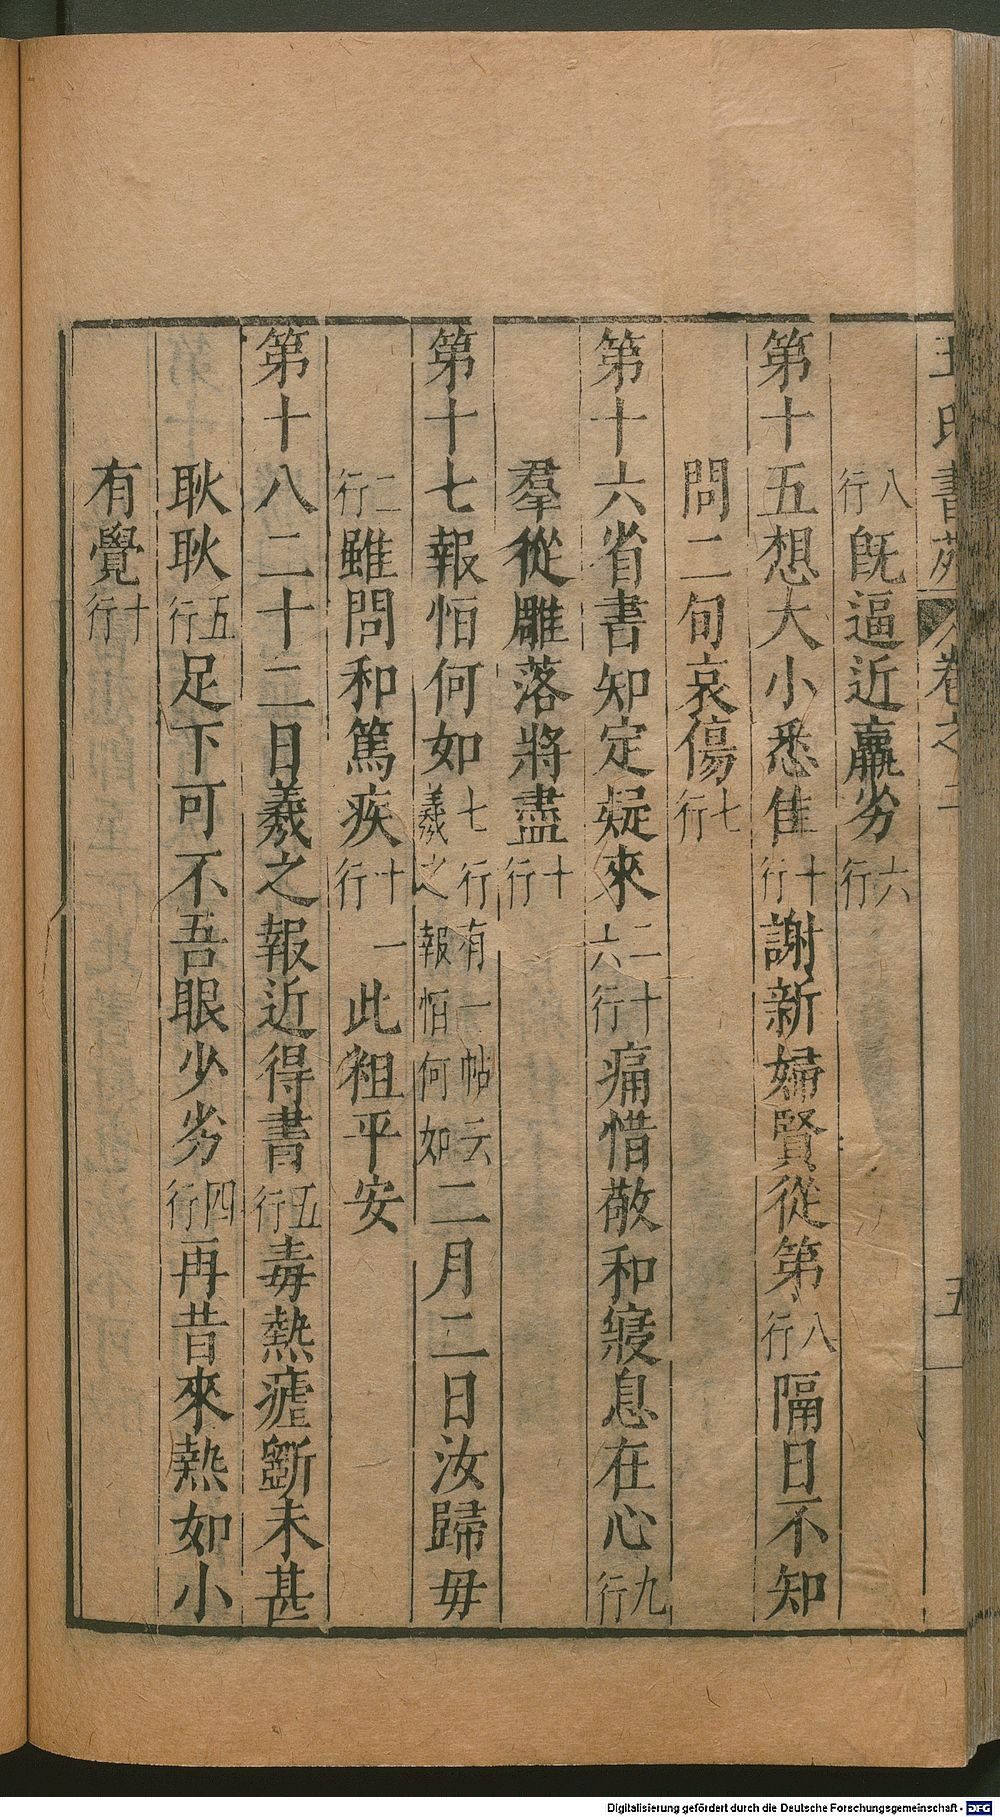 王氏書苑 卷之二 五
八行既逼近羸劣六行
第十五想大小悉佳十行謝新婦賢從第八行隔日不知
問二旬哀傷七行
第十六省書知定疑來二十六行痛惜敬和寖息在心九行
羣從雕落將盡十行
第十七報怕何如七行有一帖云羲之報怕何如二月二日汝歸毋
二行雖問和篤疾十行一此粗平安
第十八二十二日羲之報近得書五行毒熱瘧斷未甚
耿耿五行足下可不吾眼少劣四行再昔來熱如小
有覺十行
Digitalisierung gefördert durch die Deutsche Forschungsgemeinschaft - DFG